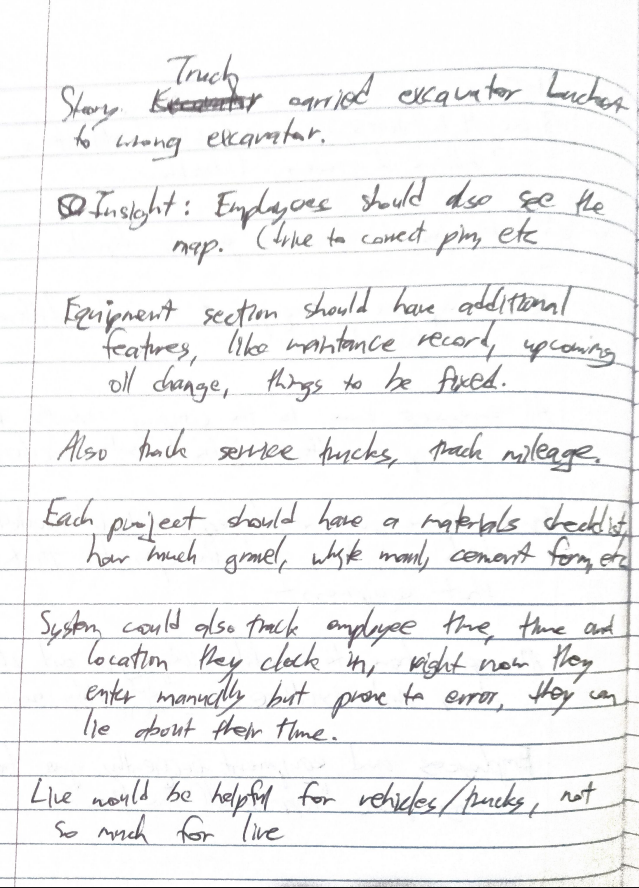 Truck
Story: carried excavator bucket
to wrong excavator.
Insight: Employees should also see the
map. (drive to correct pin, etc
Equipment section should have additional
features, like maintance record, upcoming
oil change, things to be fixed.
Also track service trucks, track mileage.
Each project should have a materials checklist,
how much gravel, cement form, etc
System could also track employee time, time and
location they clock in, right now they
enter manually but prone to error, they can
lie about their time.
Live would be helpful for vehicles/trucks, not
so much for live